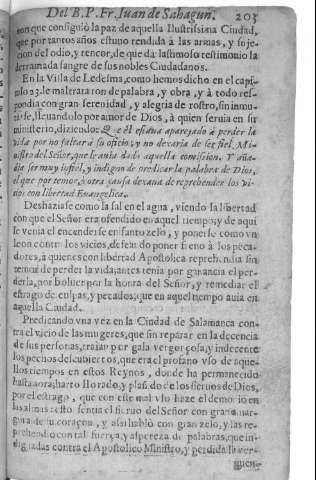 Del B. P. Fr. Iuan de Sahagun. 203
con que consiguiò la paz de aquella Ilustrissima Ciudad,
que por tantos años estuuo rendida à las armas, y suje-
cion del odio, y rencor, de que da lastimoso testimonio la
derramada sangre de sus nobles Ciudadanos.
En la Villa de Ledesma, como hemos dicho en el capi-
tulo 23. le maltrataron de palabra, y obra, y à todo res-
pondia con gran serenidad, y alegria de rostro, sin inmu-
tarse, lleuandolo por amor de Dios, à quien seruia en su
ministerio, diziendo: Que èl estaua aparejado à perder la
vida por no faltar à su oficio, y no dexaria de ser fiel Mi-
nistro del Señor, que le auia dado aquella comission. Y aña-
dia ser muy infiel, y indigno de predicar la palabra de Dios,
el que por temor, ò otra causa dexaua de reprehender los vi-
cios con libertad Euangelica.
Deshaziase como la sal en el agua, viendo la libertad
con que el Señor era ofendido en aquel tiempo; y de aqui
se venia el encenderse en santo zelo, y ponerse como vn
leon contra los vicios, deseando poner freno à los peca-
dores, à quienes con libertad Apostolica reprehendia sin
temor de perder la vida, antes tenia por ganancia el per-
derla, por boluer por la honra del Señor, y remediar el
estrago de culpas, y pecados, que en aquel tiempo auia en
aquella Ciudad.
Predicando vna vez en la Ciudad de Salamanca con-
tra el vicio de las mugeres, que sin reparar en la decencia
de sus personas, traian por gala vergonçosa, y indecente
los pechos descubiertos, que era el profano vso de aque-
llos tiempos en estos Reynos, donde ha permanecido
hasta aora, harto llorado, y de los sieruos de Dios,
por el estrago, que con este mal vso haze el demonio en
las almas: esto sentia el sieruo del Señor con grande amar-
gura de su coraçon, y assi hablò con gran zelo, y las re-
prehendiò con tal fuerça, y aspereza de palabras, que in-
dignadas contra el Apostolico Ministro, y perdida la ver-
guen-